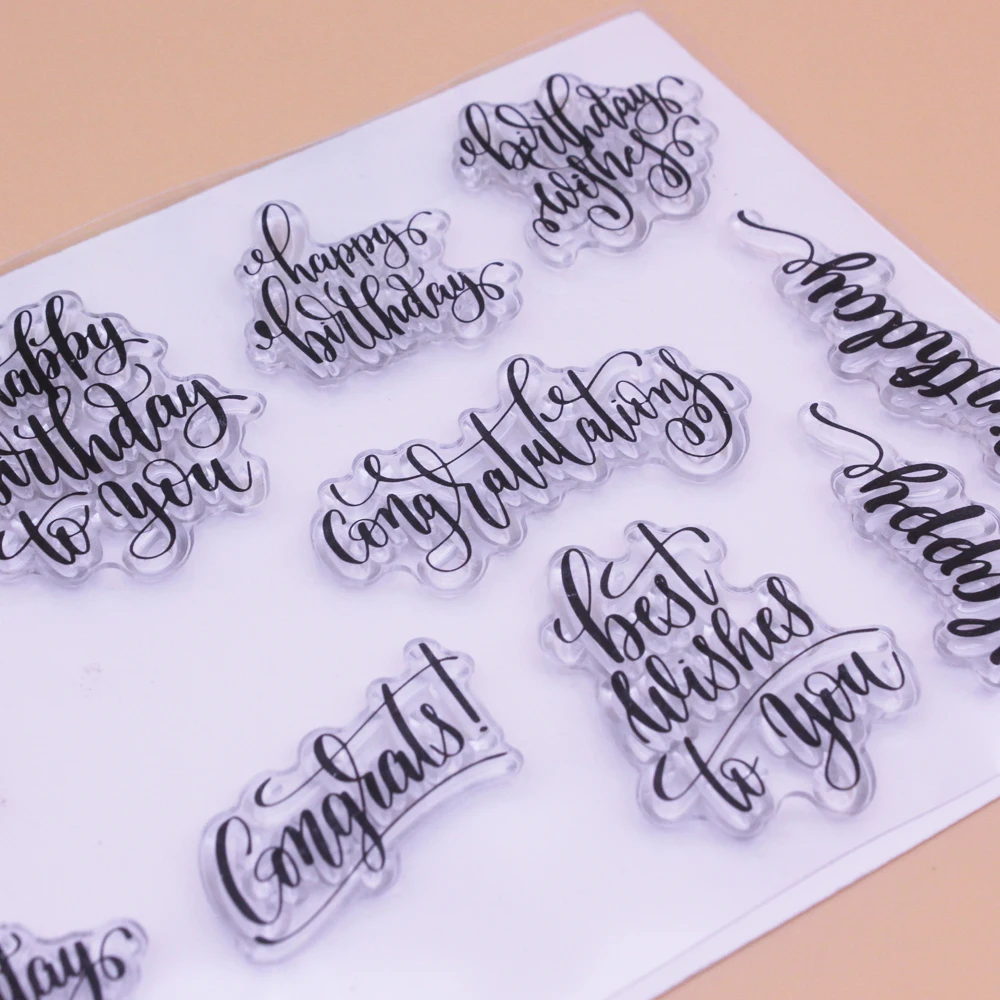 birthday
wishes
happy
birthday
happy
birthday
to you
congratulations
birthday
happy
best
wishes
to you
Congrats!
day